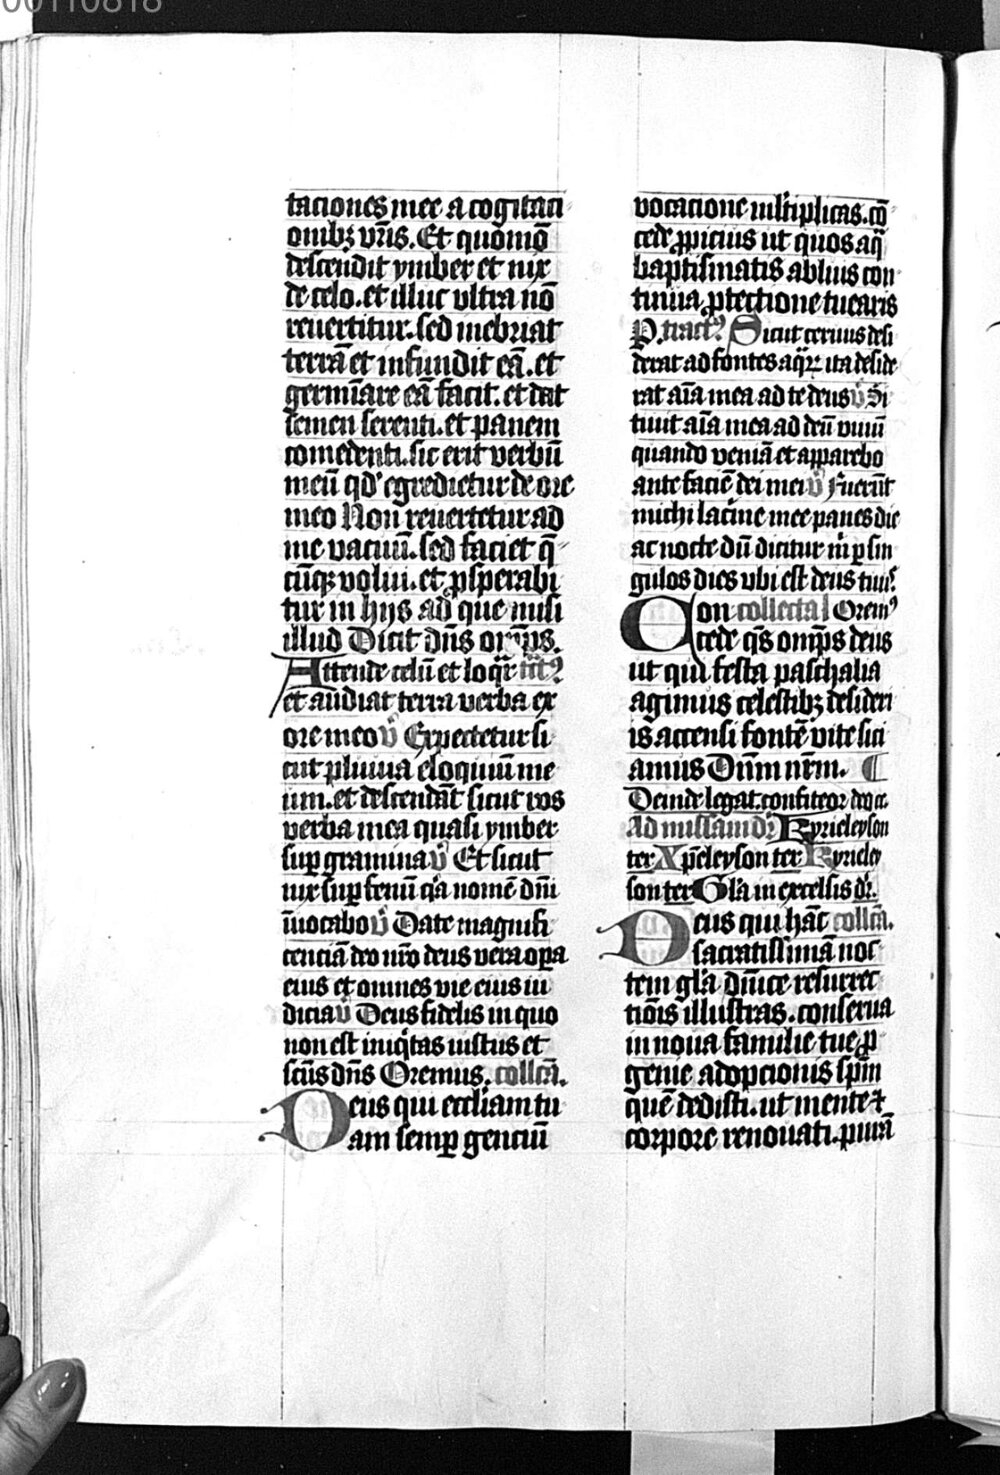 00110818
taciones mee a cogitaci
onibꝫ vr̃is. Et quōmō
descendit ymber et nix
de celo. et illuc vltra nō
reuertitur. sed inebriat
terrā et infundit eā. et
germīare eā facit. et dat
semen serenti. et panem
comedenti. sic erit verbū
meū qd' egredietur de ore
meo Non reuertetur ad
me vacuū. sed faciet q̄
cūqꝫ volui. et ꝓsperabi
tur in hijs ad que misi
illud Dicit dn̄s om̄ps.
Attende celū et loqͣr tͣctꝰ
et audiat terra verba ex
ore meo v̄ Expectetur si
cut pluuia eloquiū me
um. et descendāt sicut ros
verba mea quasi ymber
suꝑ gramina v̄ Et sicut
nix suꝑ fenū qͥa nomē dn̄i
īuocabo v̄ Date magnifi
cenciā deo nr̄o deus vera oꝑa
eius et omnes vie eius iu
dicia v̄ Deus fidelis in quo
non est iniqͥtas iustus et
sc̄us dn̄s Oremus. collc̄a.
Deus qui eccl̄iam tu
am semꝑ genciū
vocacione ml̓tiplicas. cō
cede ꝓpicius ut quos aq̄
baptismatis abluis con
tinua ꝓtectione tuearis
P. tractꝰ Sicut ceruus desi
derat ad fontes aqͣꝝ ita deside
rat aīa mea ad te deus v̄ Si
tiuit aīa mea ad deū viuū
quando veniā et apparebo
ante faciē dei mei v̄ Fuerūt
michi lacͥme mee panes die
ac nocte dū dicitur mͥ ꝑ sin
gulos dies vbi est deus tuꝰ
Con collecta Oremꝰ
cede q̄s om̄ps deus
ut qui festa paschalia
agimus celestibꝫ desideri
is accensi fontē vite siti
amus Dn̄m nr̄m. ¶
Deinde legat. confiteor deo ꝛc.
Ad missam dr̄ Kyrieleyson
ter Xp̄eleyson ter Kyrieley
son ter Gl̄a in excelsis dr̄.
Deus qui hāc collc̄a.
sacratissimā noc
tem gl̄a dn̄ice resurrec
tiōis illustras. conserua
in noua familie tue ꝓ
genie adopcionis sp̄m
quē dedisti. ut mente ⁊
corpore renouati. purā